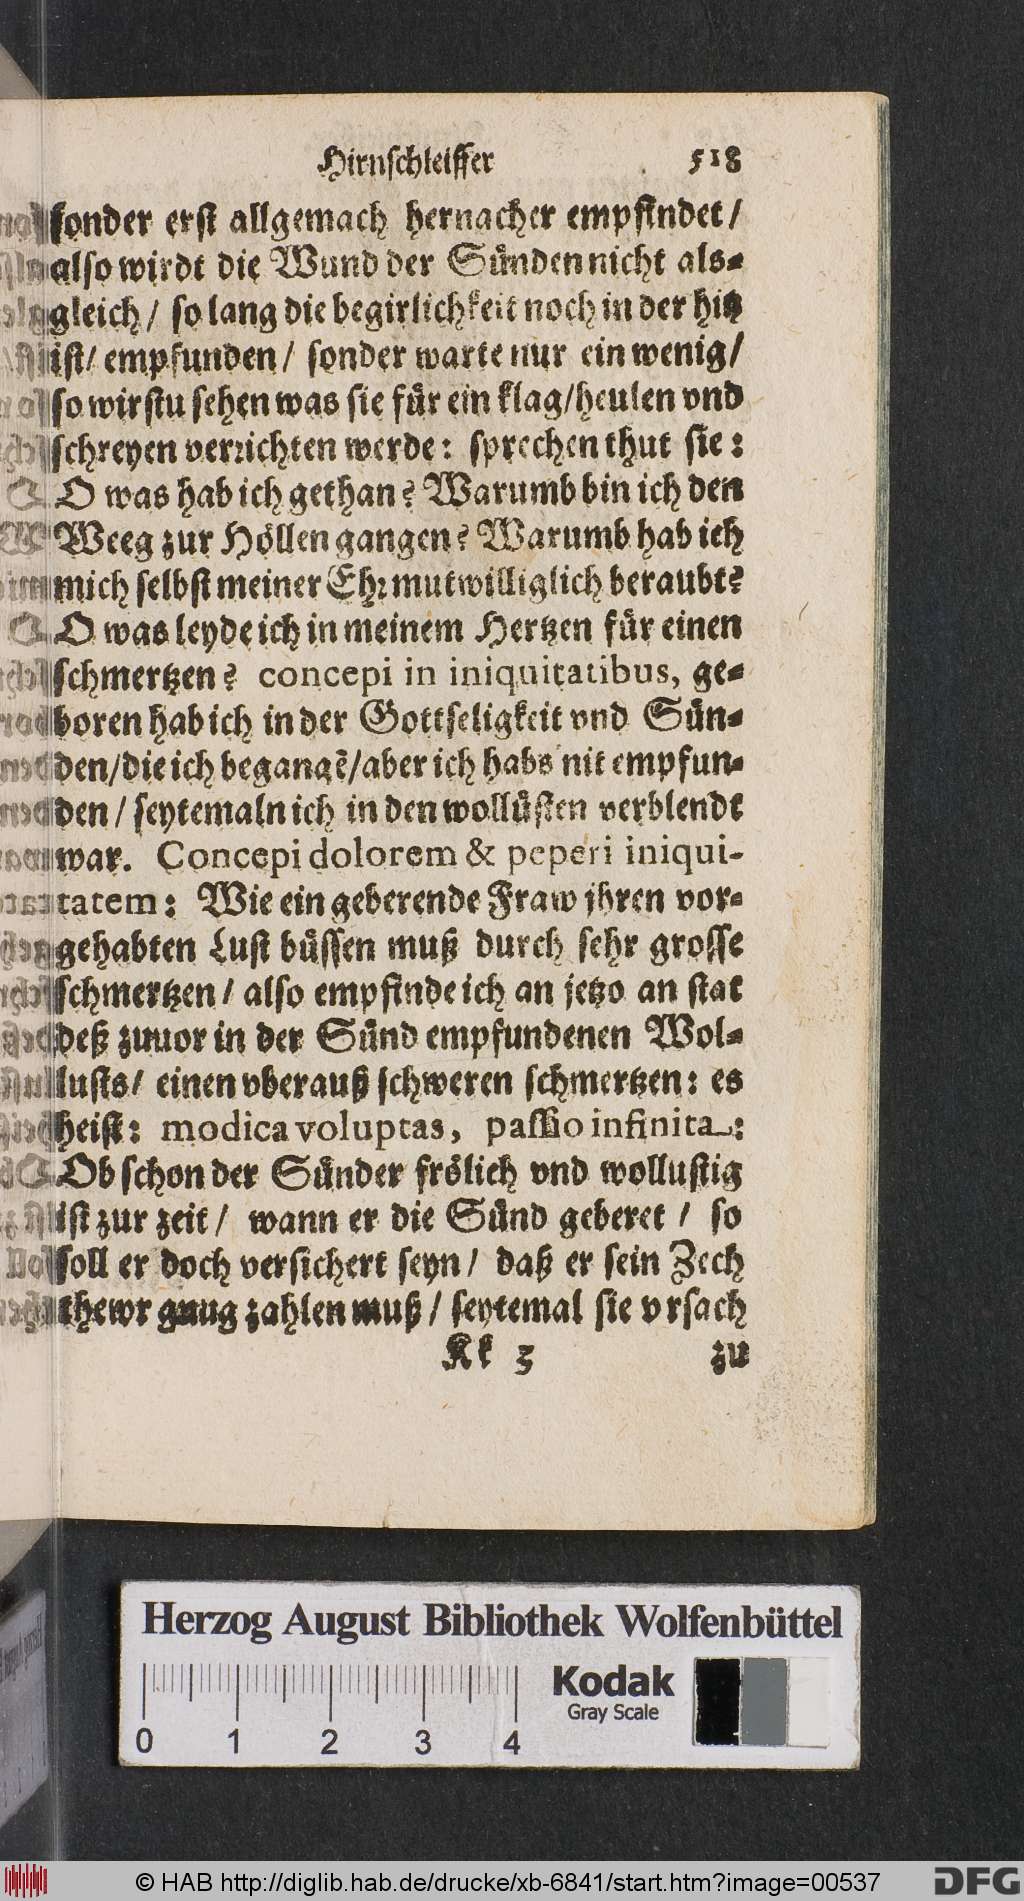 Hirnſchleiffer 518
ſonder erſt allgemach hernacher empfindet /
alſo wirdt die Wund der Sünden nicht als-
gleich / ſo lang die begirlichkeit noch in der hitz
iſt / empfunden / ſonder warte nur ein wenig /
ſo wirſtu ſehen was ſie für ein klag / heulen vnd
ſchreyen verrichten werde: ſprechen thut ſie:
O was hab ich gethan? Warumb bin ich den
Weeg zur Höllen gangen? Warumb hab ich
mich ſelbſt meiner Ehr mutwilliglich beraubt?
O was leyde ich in meinem Hertzen für einen
ſchmertzen? concepi in iniquitatibus, ge-
boren hab ich in der Gottſeligkeit vnd Sün-
den / die ich begangẽ / aber ich habs nit empfun-
den / ſeytemaln ich in den wollüſten verblendt
war. Concepi dolorem & peperi iniqui-
tatem: Wie ein geberende Fraw jhren vor-
gehabten Luſt büſſen muß durch ſehr groſſe
ſchmertzen / alſo empfinde ich an jetzo an ſtat
deß zuuor in der Sünd empfundenen Wol-
luſts / einen vberauß ſchweren ſchmertzen: es
heiſt: modica voluptas, paſſio infinita:
Ob ſchon der Sünder frölich vnd wolluſtig
iſt zur zeit / wann er die Sünd geberet / ſo
ſoll er doch verſichert ſeyn / daß er ſein Zech
thewr gnug zahlen muß / ſeytemal ſie vrſach
Kk 3 zu
Herzog August Bibliothek Wolfenbüttel
Kodak
Gray Scale
0 1 2 3 4
© HAB http://diglib.hab.de/drucke/xb-6841/start.htm?image=00537
DFG